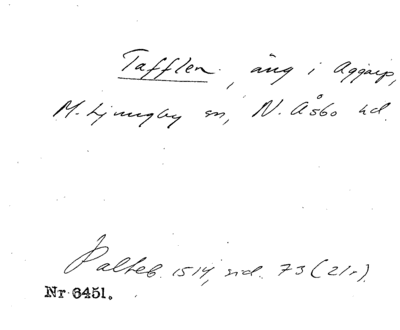 Tafflen, äng i Aggarp,
M. Ljungby sn, N. Åsbo hd.
Palteb. 1514, sid. 73 (21r).
Nr 6451.